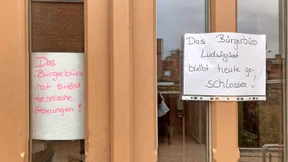 Das
Bürgerbüro
hat
technische
Störungen!
Das Bürgerbüro
Ludwigslust
bleibt heute ge-
schlossen!